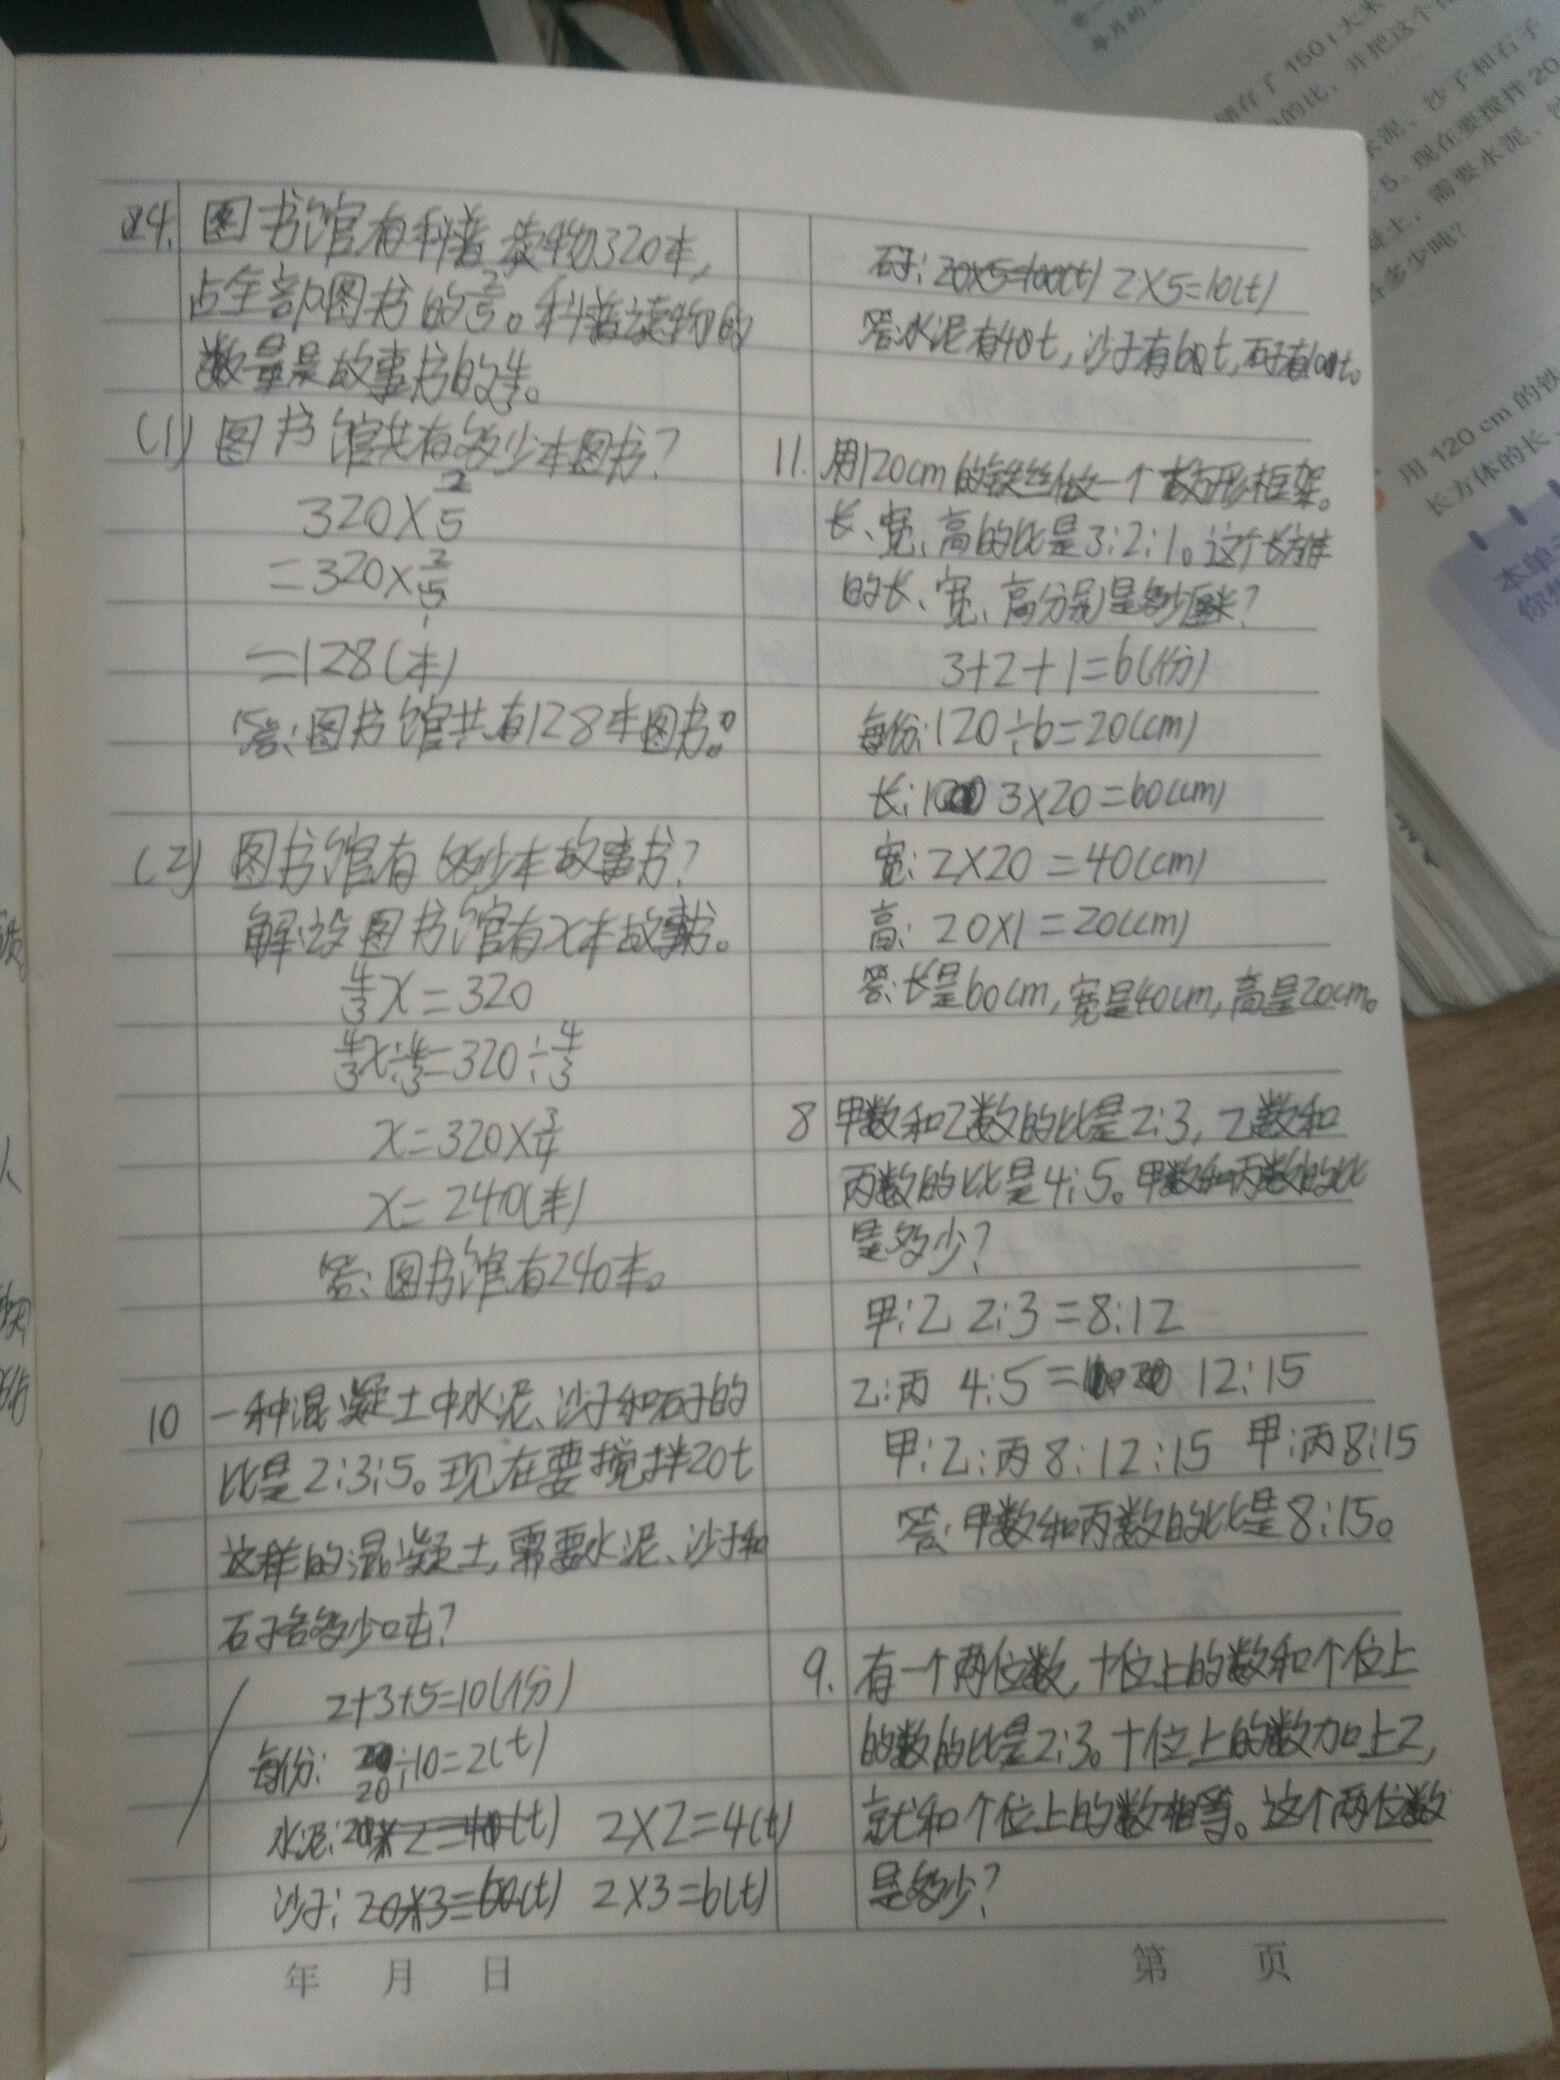 24. 图书馆有科普读物320本,
占全部图书的2/5。科普读物的
数量是故事书的4/3。
(1) 图书馆共有多少本图书?
320×2/5
=320×2/5
1
=128(本)
答:图书馆共有128本图书。
(2) 图书馆有多少本故事书?
解:设图书馆有x本故事书。
4/3x=320
4/3x÷4/3=320÷4/3
x=320×3/4
x=240(本)
答:图书馆有240本。
10 一种混凝土中水泥、沙子和石子的
比是2:3:5。现在要搅拌20t
这样的混凝土,需要水泥、沙子和
石子各多少吨?
2+3+5=10(份)
每份: 20÷10=2(t)
20
水泥:20×2=40(t) 2×2=4(t)
沙子:20×3=60(t) 2×3=6(t)
石子:20×5=100(t) 2×5=10(t)
答:水泥有40t,沙子有60t,石子有100t。
11. 用120cm的铁丝做一个长方形框架。
长、宽、高的比是3:2:1。这个长方体
的长、宽、高分别是多少厘米?
3+2+1=6(份)
每份:120÷6=20(cm)
长: 3×20=60(cm)
宽:2×20=40(cm)
高:20×1=20(cm)
答:长是60cm,宽是40cm,高是20cm。
8 甲数和乙数的比是2:3,乙数和
丙数的比是4:5。甲数和丙数的比
是多少?
甲:乙 2:3=8:12
乙:丙 4:5= 12:15
甲:乙:丙 8:12:15 甲:丙8:15
答:甲数和丙数的比是8:15。
9. 有一个两位数,十位上的数和个位上
的数的比是2:3。十位上的数加上2,
就和个位上的数相等。这个两位数
是多少?
年 月 日
第 页
储存了150t大米
的比,并把这个
水泥、沙子和石子
5。现在要搅拌20
凝土,需要水泥、
各多少吨?
用120 cm的铁
长方体的长、
本单元
你